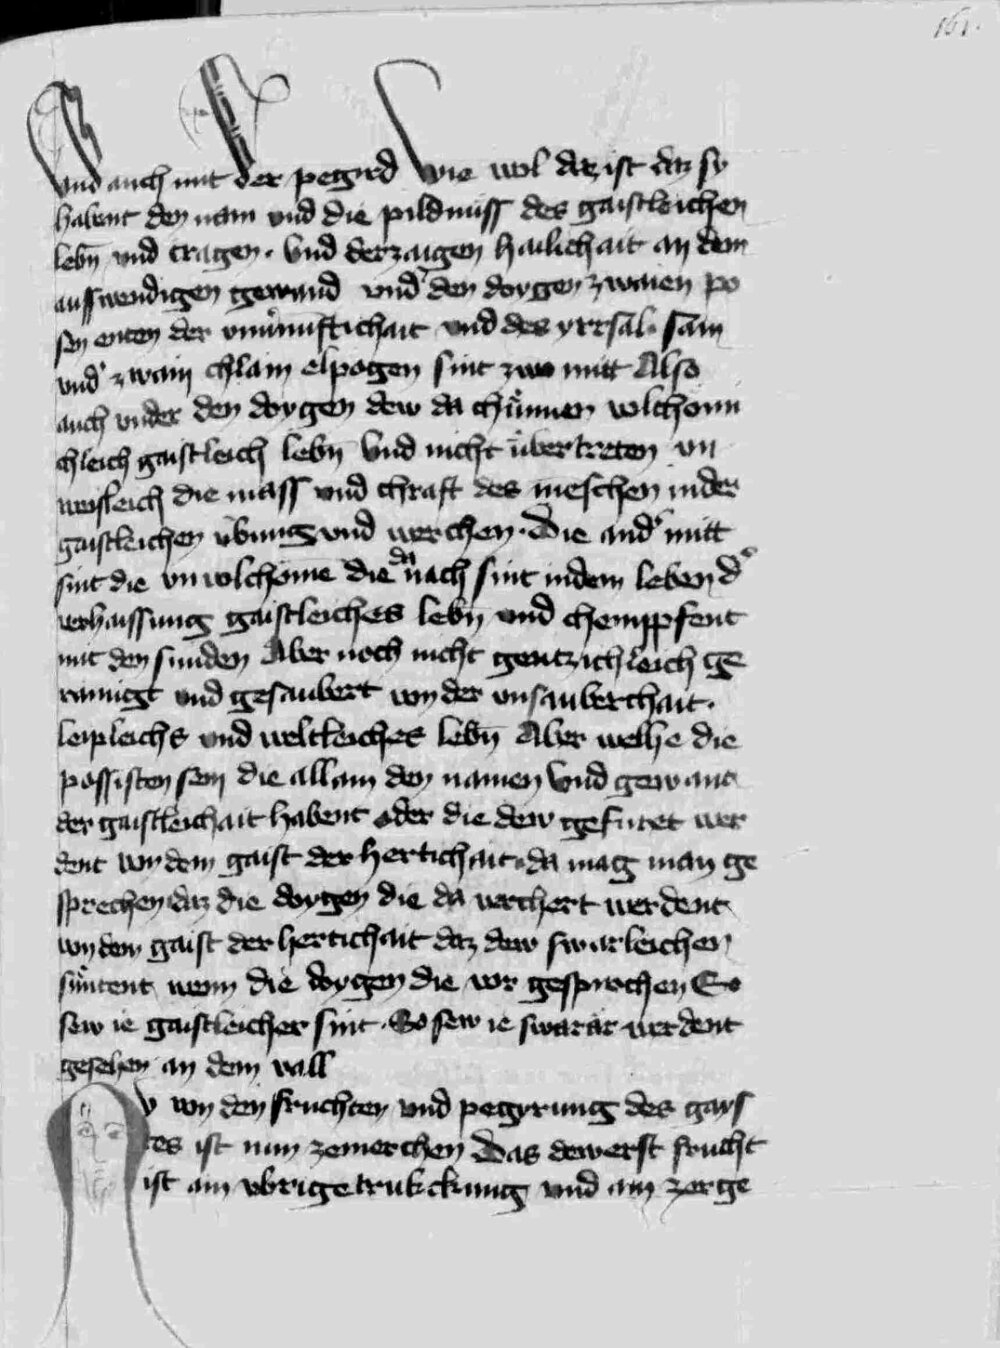 161.
Vnd auch mit der pegird Wie wol daz ist daz sy
habent den nam vnd die pildnuss des gaistleichen
lebn̄ vnd tragen. Vnd derzaigen hailichait an dem
ausswendigen gewand vnd den doygen zwaien po
sen enten der vnuͤnuftichait vnd des yrrsal. sam
vnd zwain chlain elpogen sint zwo mitt Also
auch vnder den doygen dew da chuͤnnen volchomn
chleich gaistleich lebn̄ Vnd nicht uͤbertreten vn
weisleich die mass vnd chraft des meschen in der
gaistleichen uͤbung vnd werchen. Die and' mitt
sint die vnuolchome die da nach sint in dem leben d'
verhaissung gaistleiches lebn̄ vnd chempfent
mit den sunden Aber noch nicht gentzichleich ge
rainigt vnd gesaubert von der vnsauberchait.
leipleichs vnd weltleiches lebn̄ Aber welhe die
posisten sein die allain den namen Vnd gewant
der gaistleichait habent oder die dew gefuret wer
dent von dem gaist der hertichait. da mag man ge
sprechen daz die doygen die da verchert werdent
von dem gaist der hertichait daz dew swarleichen
suͤntent wenn die doygen die vor gesprochen So
sew ie gaistleicher sint. So sew ie swarar werdent
gesehen an dem vall
v von den fruchten vnd pegyrung des gays
tes ist nun zemerchen Das dewerst frucht
ist ain vbrige trukckung vnd ain zerge